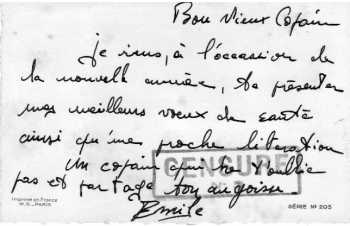 Bon Vieux Copain
je viens, à l'occasion de
la nouvelle année, te présenter
mes meilleurs voeux de santé
ainsi qu'une proche libération
Un copain qui ne t'oublie
CENSURE
pas et partage ton angoisse.
Emile
Imprimé en France
PARIS
SÉRIE Nº 205